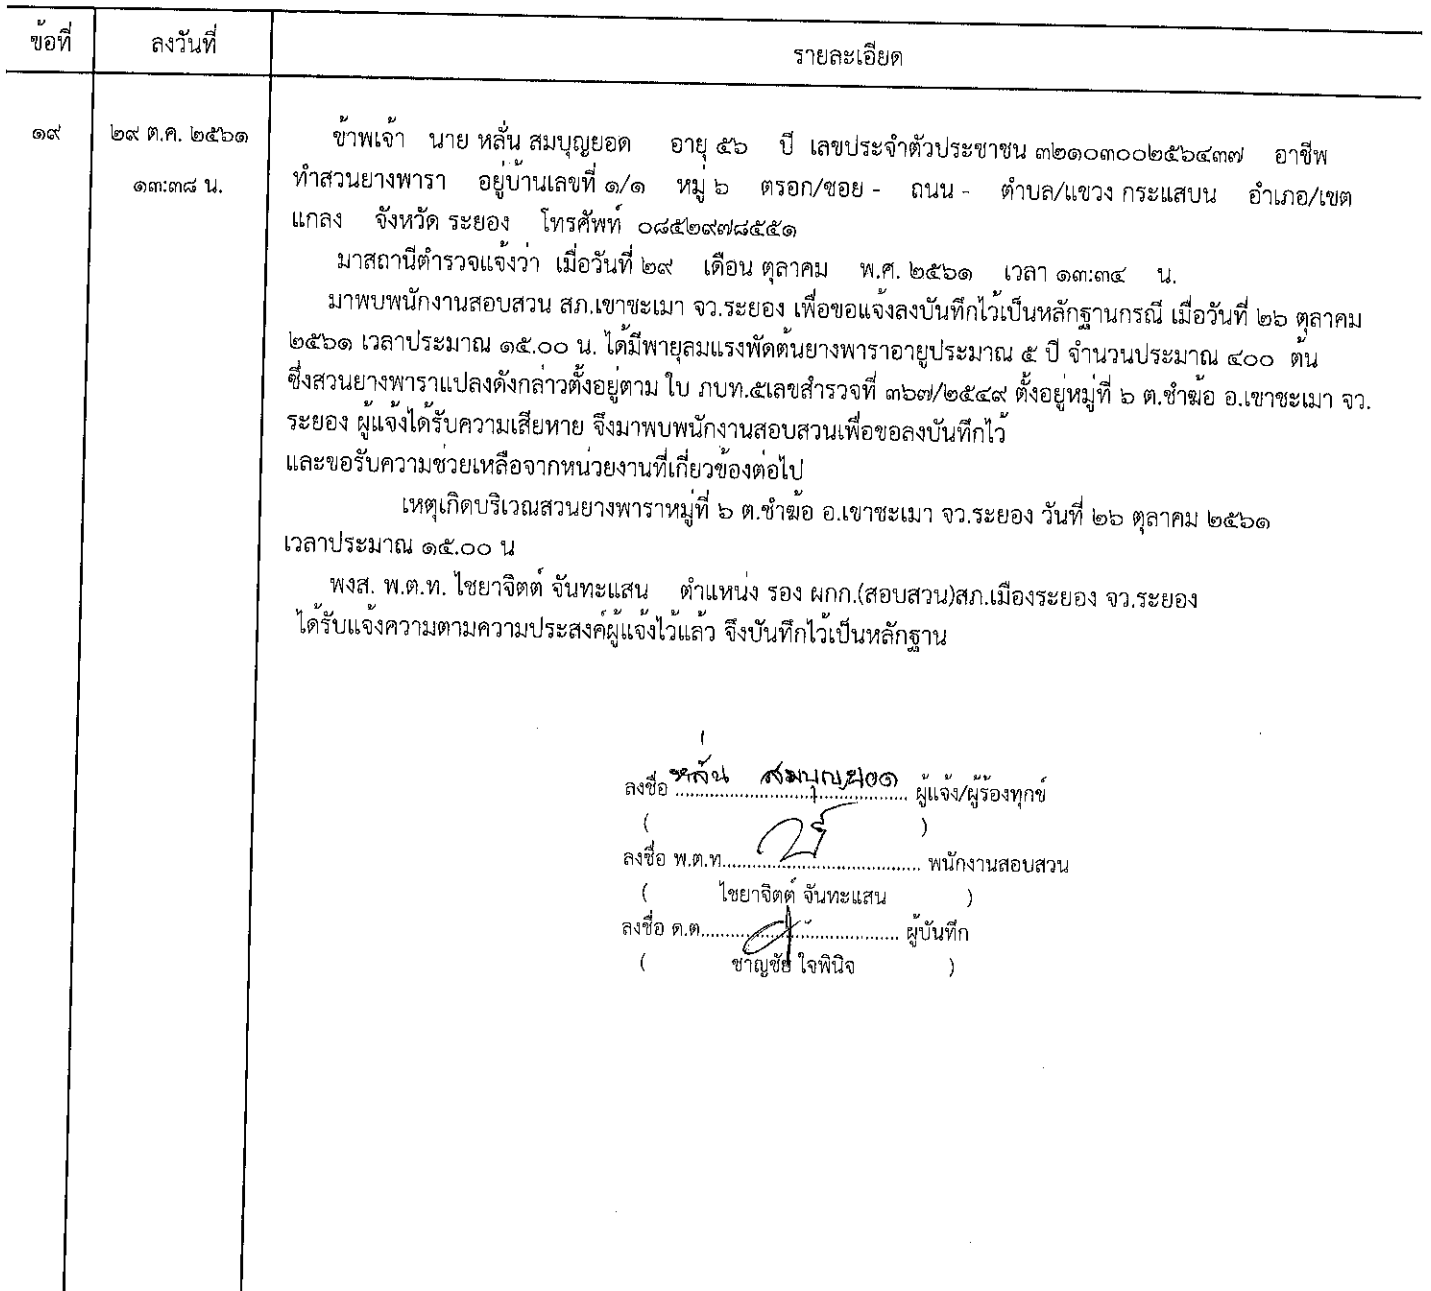 ข้อที่ ลงวันที่ รายละเอียด
๑๙ ๒๙ ต.ค. ๒๕๖๑ ข้าพเจ้า นาย หลั่น สมบุญยอด อายุ ๕๖ ปี เลขประจำตัวประชาชน ๓๒๑๐๓๐๐๒๕๖๔๓๗ อาชีพ
๑๓:๓๘ น. ทำสวนยางพารา อยู่บ้านเลขที่ ๑/๑ หมู่ ๖ ตรอก/ซอย - ถนน - ตำบล/แขวง กระแสบน อำเภอ/เขต
แกลง จังหวัด ระยอง โทรศัพท์ ๐๘๕๒๙๗๘๕๕๑
มาสถานีตำรวจแจ้งว่า เมื่อวันที่ ๒๙ เดือน ตุลาคม พ.ศ. ๒๕๖๑ เวลา ๑๓:๓๔ น.
มาพบพนักงานสอบสวน สภ.เขาชะเมา จว.ระยอง เพื่อขอแจ้งลงบันทึกไว้เป็นหลักฐานกรณี เมื่อวันที่ ๒๖ ตุลาคม
๒๕๖๑ เวลาประมาณ ๑๕.๐๐ น. ได้มีพายุลมแรงพัดต้นยางพาราอายูประมาณ ๕ ปี จำนวนประมาณ ๔๐๐ ต้น
ซึ่งสวนยางพาราแปลงดังกล่าวตั้งอยู่ตาม ใบ ภบท.๕เลขสำรวจที่ ๓๖๗/๒๕๔๙ ตั้งอยู่หมู่ที่ ๖ ต.ชำฆ้อ อ.เขาชะเมา จว.
ระยอง ผู้แจ้งได้รับความเสียหาย จึงมาพบพนักงานสอบสวนเพื่อขอลงบันทึกไว้
และขอรับความช่วยเหลือจากหน่วยงานที่เกี่ยวข้องต่อไป
เหตุเกิดบริเวณสวนยางพาราหมู่ที่ ๖ ต.ชำฆ้อ อ.เขาชะเมา จว.ระยอง วันที่ ๒๖ ตุลาคม ๒๕๖๑
เวลาประมาณ ๑๕.๐๐ น
พงส. พ.ต.ท. ไชยาจิตต์ จันทะแสน ตำแหน่ง รอง ผกก.(สอบสวน)สภ.เมืองระยอง จว.ระยอง
ได้รับแจ้งความตามความประสงค์ผู้แจ้งไว้แล้ว จึงบันทึกไว้เป็นหลักฐาน
ลงชื่อ หลั่น สมบุญยอด ผู้แจ้ง/ผู้ร้องทุกข์
( )
ลงชื่อ พ.ต.ท. พนักงานสอบสวน
( ไชยาจิตต์ จันทะแสน )
ลงชื่อ ด.ต. ผู้บันทึก
( ชาญชัย ใจพินิจ )